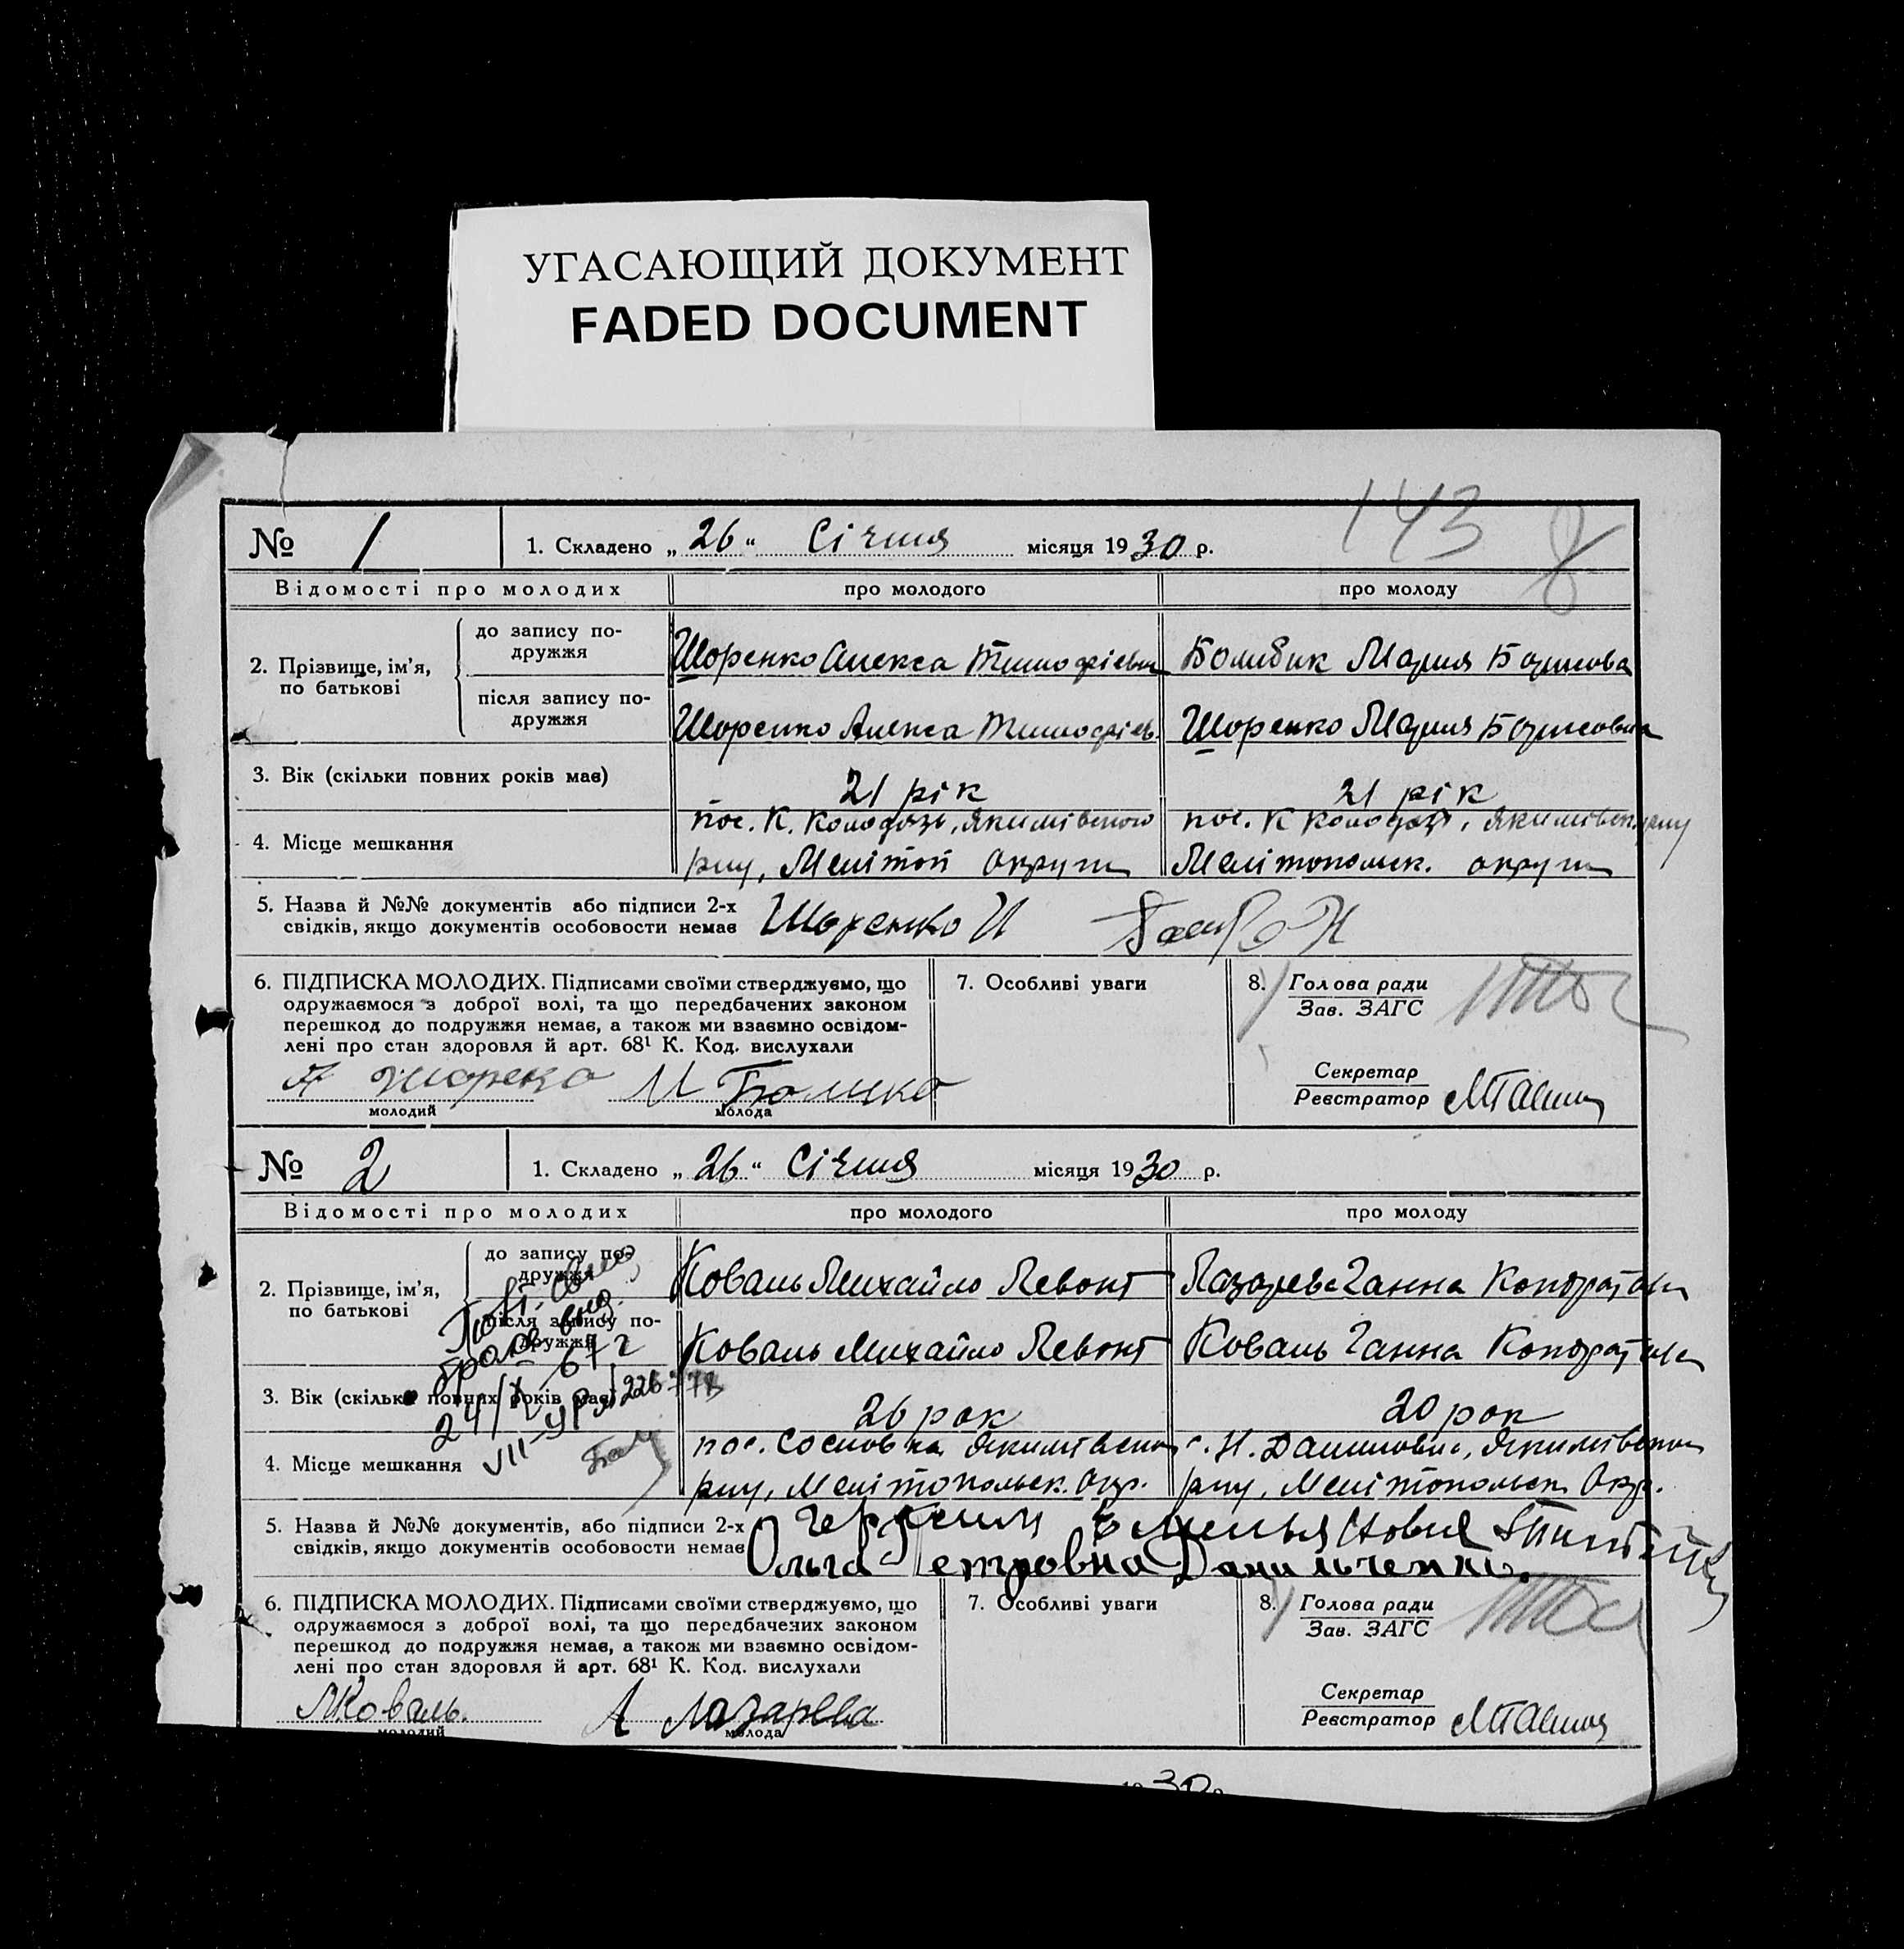 УГАСАЮЩИЙ ДОКУМЕНТ
FADED DOCUMENT
143
8
№ 1
1. Складено „ 26 “ Січня місяця 1930 р.
Відомості про молодих
про молодого
про молоду
2. Прізвище, ім’я, по батькові
до запису подружжя
Шоренко Алекса Тимофієвич
Мария Борисова
після запису подружжя
Шоренко Алекса Тимофіев.
Шоренко Мария Борисовна
3. Вік (скільки повних років має)
21 рік
21 рік
4. Місце мешкання
пос. К. Колодязі, Якимівського
р-ну, Меліtоп округи
пос. К Колодязі, Якимівськ. р-ну
Мелітопольск. округи
5. Назва й №№ документів або підписи 2-х
свідків, якщо документів особовости немає
Шоренко И
6. ПІДПИСКА МОЛОДИХ. Підписами своїми стверджуємо, що
одружаємося з доброї волі, та що передбачених законом
перешкод до подружжя немає, а також ми взаємно освідом-
лені про стан здоровля й арт. 68¹ К. Код. вислухали
молодий
молода
7. Особливі уваги
8. Голова ради
Зав. ЗАГС
Секретар
Реєстратор
№ 2
1. Складено „ 26 “ Січня місяця 1930 р.
Відомості про молодих
про молодого
про молоду
2. Прізвище, ім’я, по батькові
до запису подружжя
Коваль Михайло Левонт
Лазарева Ганна Кондратовн
після запису подружжя
Коваль Михайло Левонт
Коваль Ганна Кондратовн
3. Вік (скільки повних років має)
26 рок
20 рок
24/X 67 г
4. Місце мешкання
пос. Сосновка Якимівського
р-ну, Мелітопольск. Окр.
с. Н. Данилівка, Якимівського
р-ну, Мелітопольск Окр.
5. Назва й №№ документів, або підписи 2-х
свідків, якщо документів особовости немає
Ольга Петровна Данильченко
6. ПІДПИСКА МОЛОДИХ. Підписами своїми стверджуємо, що
одружаємося з доброї волі, та що передбачених законом
перешкод до подружжя немає, а також ми взаємно освідом-
лені про стан здоровля й арт. 68¹ К. Код. вислухали
МКоваль.
молодий
А Лазарева
молода
7. Особливі уваги
8. Голова ради
Зав. ЗАГС
Секретар
Реєстратор
30